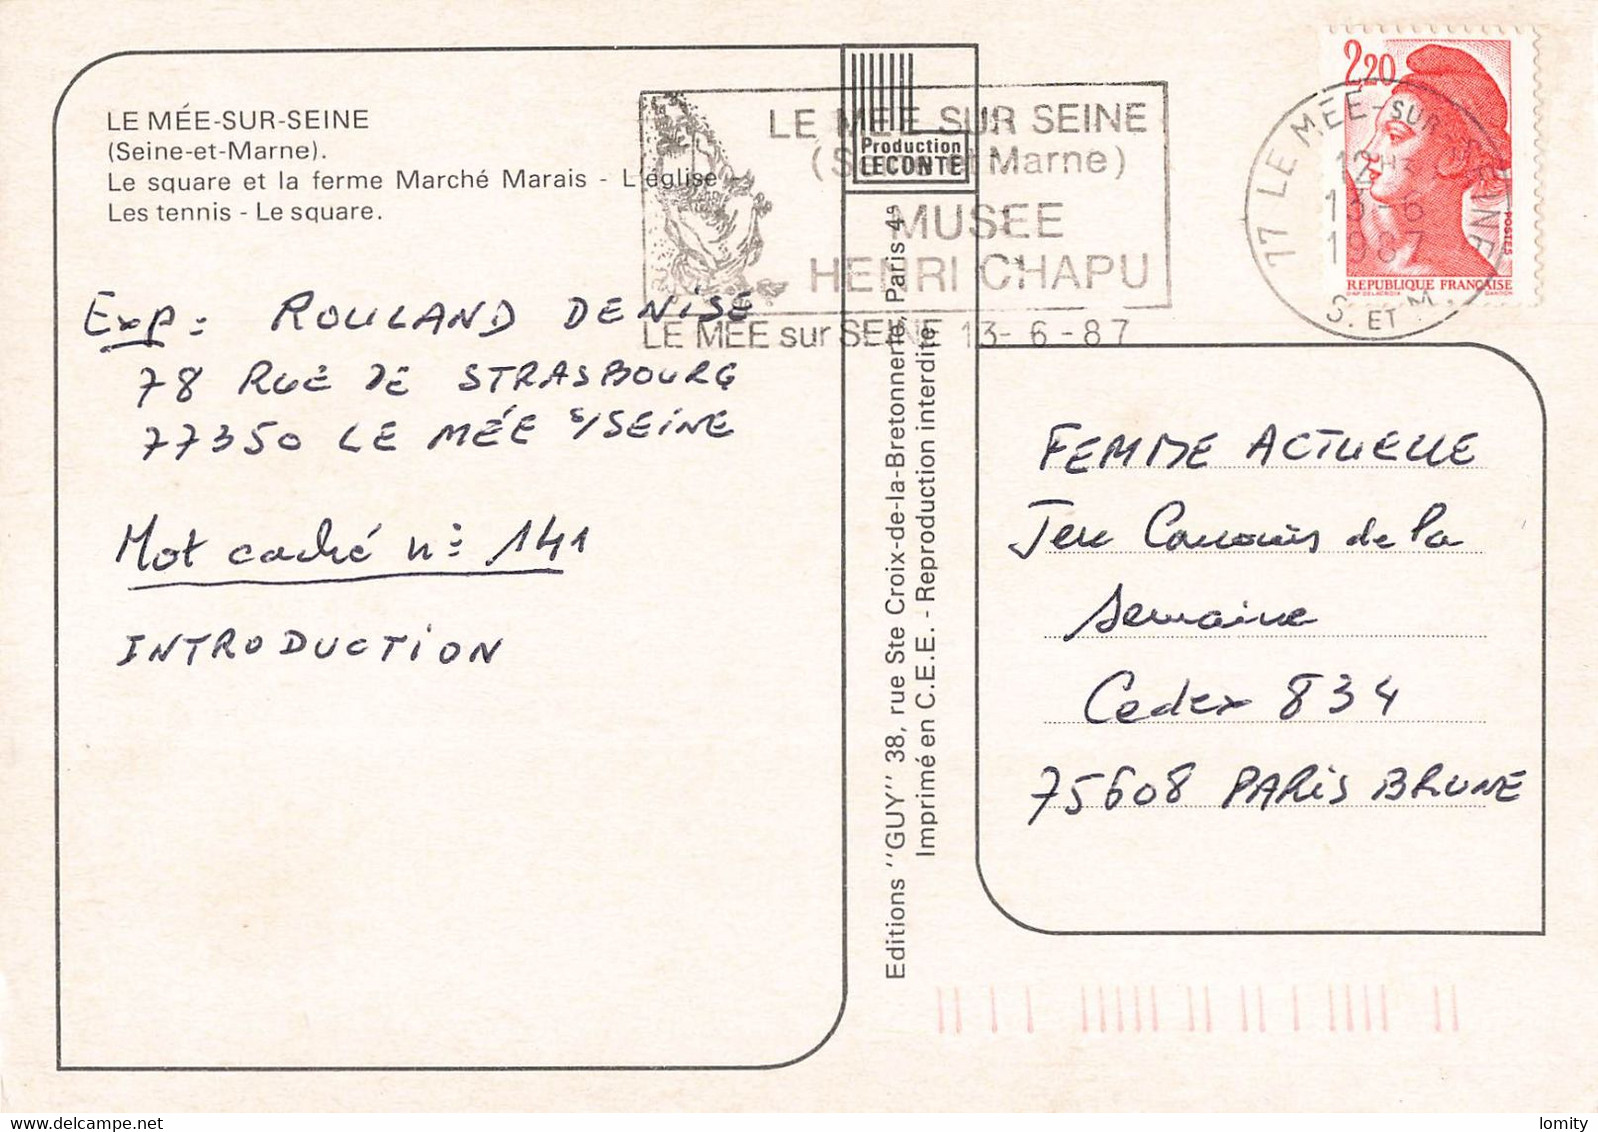 LE MÉE-SUR-SEINE
(Seine-et-Marne).
Le square et la ferme Marché Marais - L'église -
Les tennis - Le square.
Exp: ROULAND DENISE
78 RUE DE STRASBOURG
77350 LE MÉE S/SEINE
Mot caché n° 141
INTRODUCTION
Production
LECONTE
LE MEE SUR SEINE
(Seine et Marne)
MUSEE
HENRI CHAPU
LE MEE sur SEINE 13-6-87
Editions "GUY" 38, rue Ste Croix-de-la-Bretonnerie, Paris 4e
Imprimé en C.E.E. - Reproduction interdite
2,20
POSTES
REPUBLIQUE FRANÇAISE
77 LE MEE-SUR-SEINE
12H
13-6
1987
S. ET M.
FEMME ACTUELLE
Jeu Concours de la
semaine
Cedex 834
75608 PARIS BRUNE
lomity